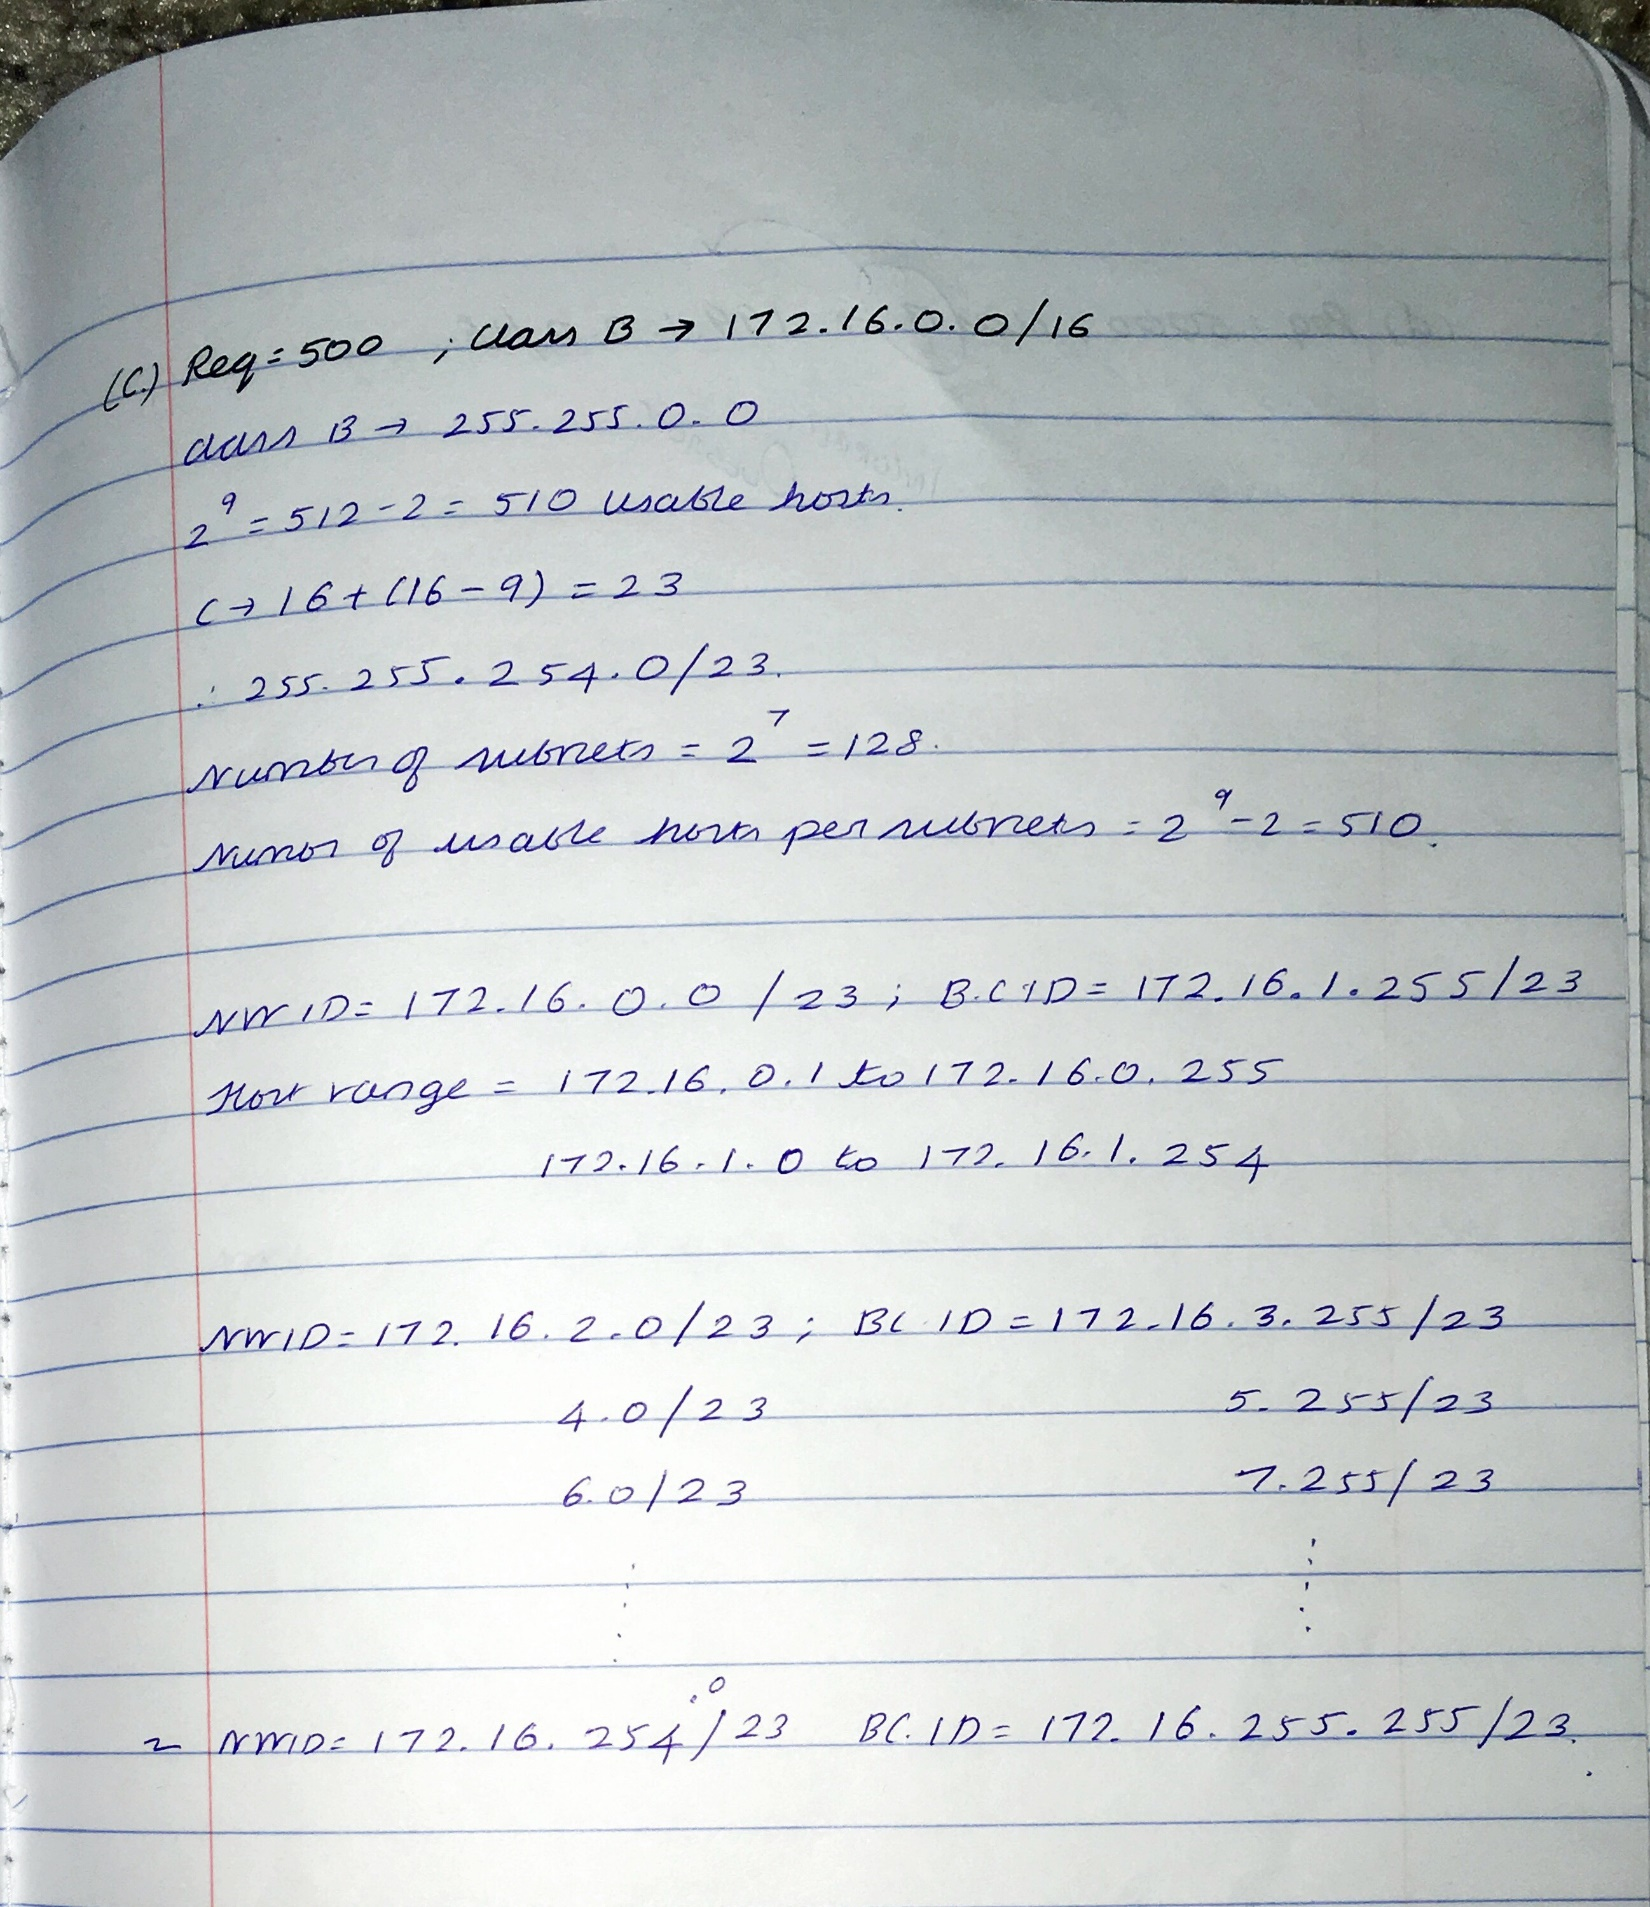 (C.) Req = 500 ; class B → 172.16.0.0/16
class B → 255.255.0.0
2⁹ = 512 - 2 = 510 usable hosts.
C → 16 + (16 - 9) = 23
∴ 255.255.254.0/23.
Number of subnets = 2⁷ = 128.
Numor of usable hosts per subnets = 2⁹ - 2 = 510.
NW ID = 172.16.0.0 /23 ; B.C ID = 172.16.1.255/23
Host range = 172.16.0.1 to 172.16.0.255
172.16.1.0 to 172.16.1.254
NWID = 172.16.2.0/23 ; BC ID = 172.16.3.255/23
4.0/23 5.255/23
6.0/23 7.255/23
NWID = 172.16.254.0/23 BC.ID = 172.16.255.255/23.